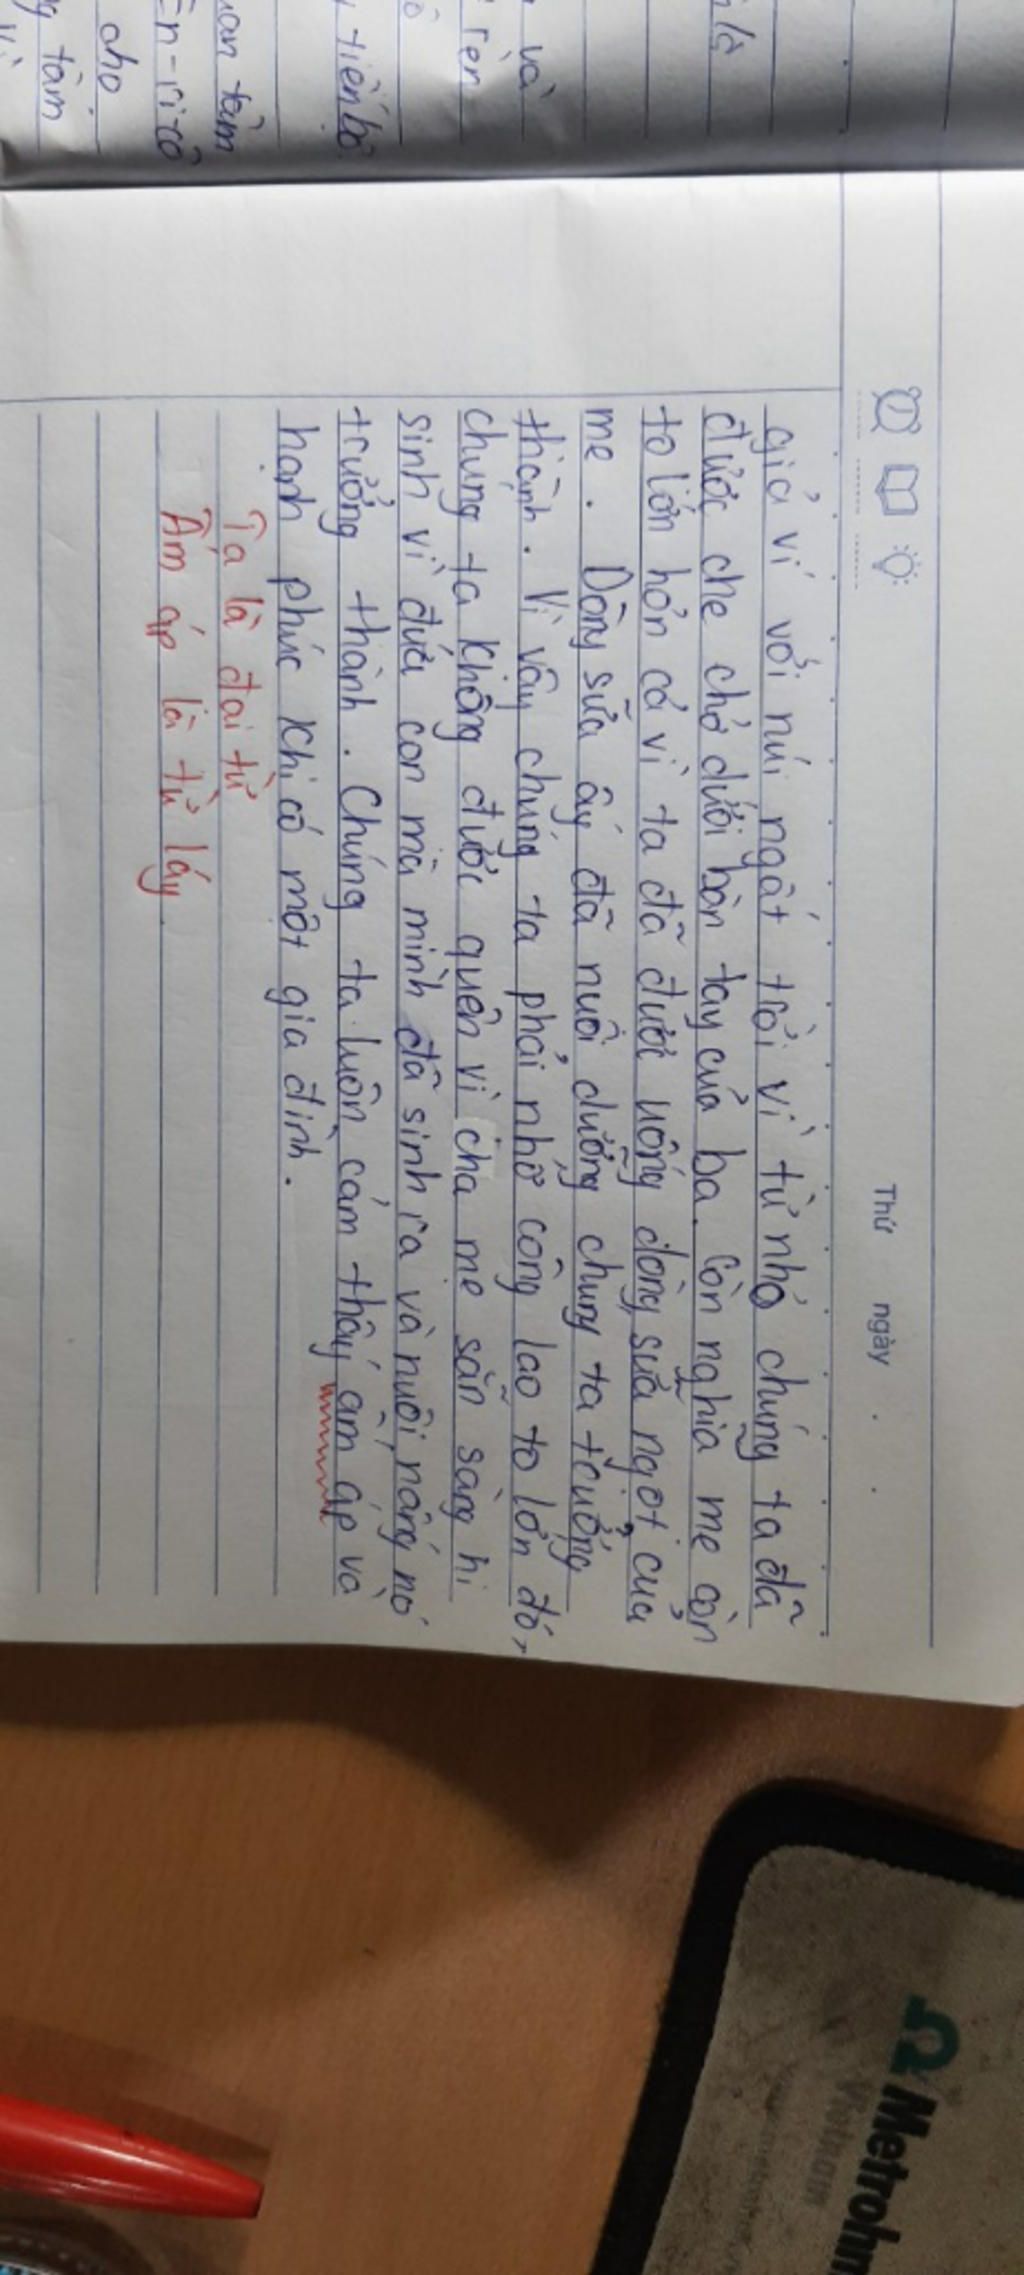 là
và
rèn
tiến bộ
quan tâm
En-ri-cô
cho
tâm
Thứ ngày
giả ví với núi ngất trời vì từ nhỏ chúng ta đã
được che chở dưới bàn tay của ba. Còn nghĩa mẹ còn
to lớn hơn cả vì ta đã được uống dòng sữa ngọt của
mẹ. Dòng sữa ấy đã nuôi dưỡng chung ta trưởng
thành. Vì vậy chúng ta phải nhớ công lao to lớn đó,
chúng ta không được quên vì cha mẹ sẵn sàng hi
sinh vì đứa con mà mình đã sinh ra và nuôi nấng nó
trưởng thành. Chúng ta luôn cảm thấy ấm áp và
hạnh phúc khi có một gia đình.
Ta là đại từ
Ấm áp là từ láy.
Metrohm
Vietnam